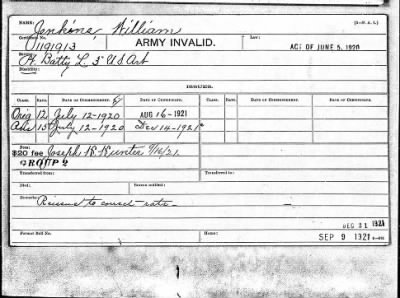 NAME: Jenkins, William (3—U.S.A.)
1191913 ARMY INVALID. Law: ACT OF JUNE 5, 1920
Service: Pt Batty L. 3" U S Art
Disability:
ISSUES.
CLASS. RATE. DATE OF COMMENCEMENT. DATE OF CERTIFICATE. CLASS. RATE. DATE OF COMMENCEMENT. DATE OF CERTIFICATE.
Orig 12 July 12-1920 AUG 16-1921
15 July 12-1920 Dec 14-1921
Fees:
$20 fee Joseph H. Hunter 9/16/21.
GROUP 2
Transferred from: Transferred to:
Died: Reason notified:
Remarks: Reissue to correct rate
DEC 21 1921
Former Roll No. Home: SEP 9 1921